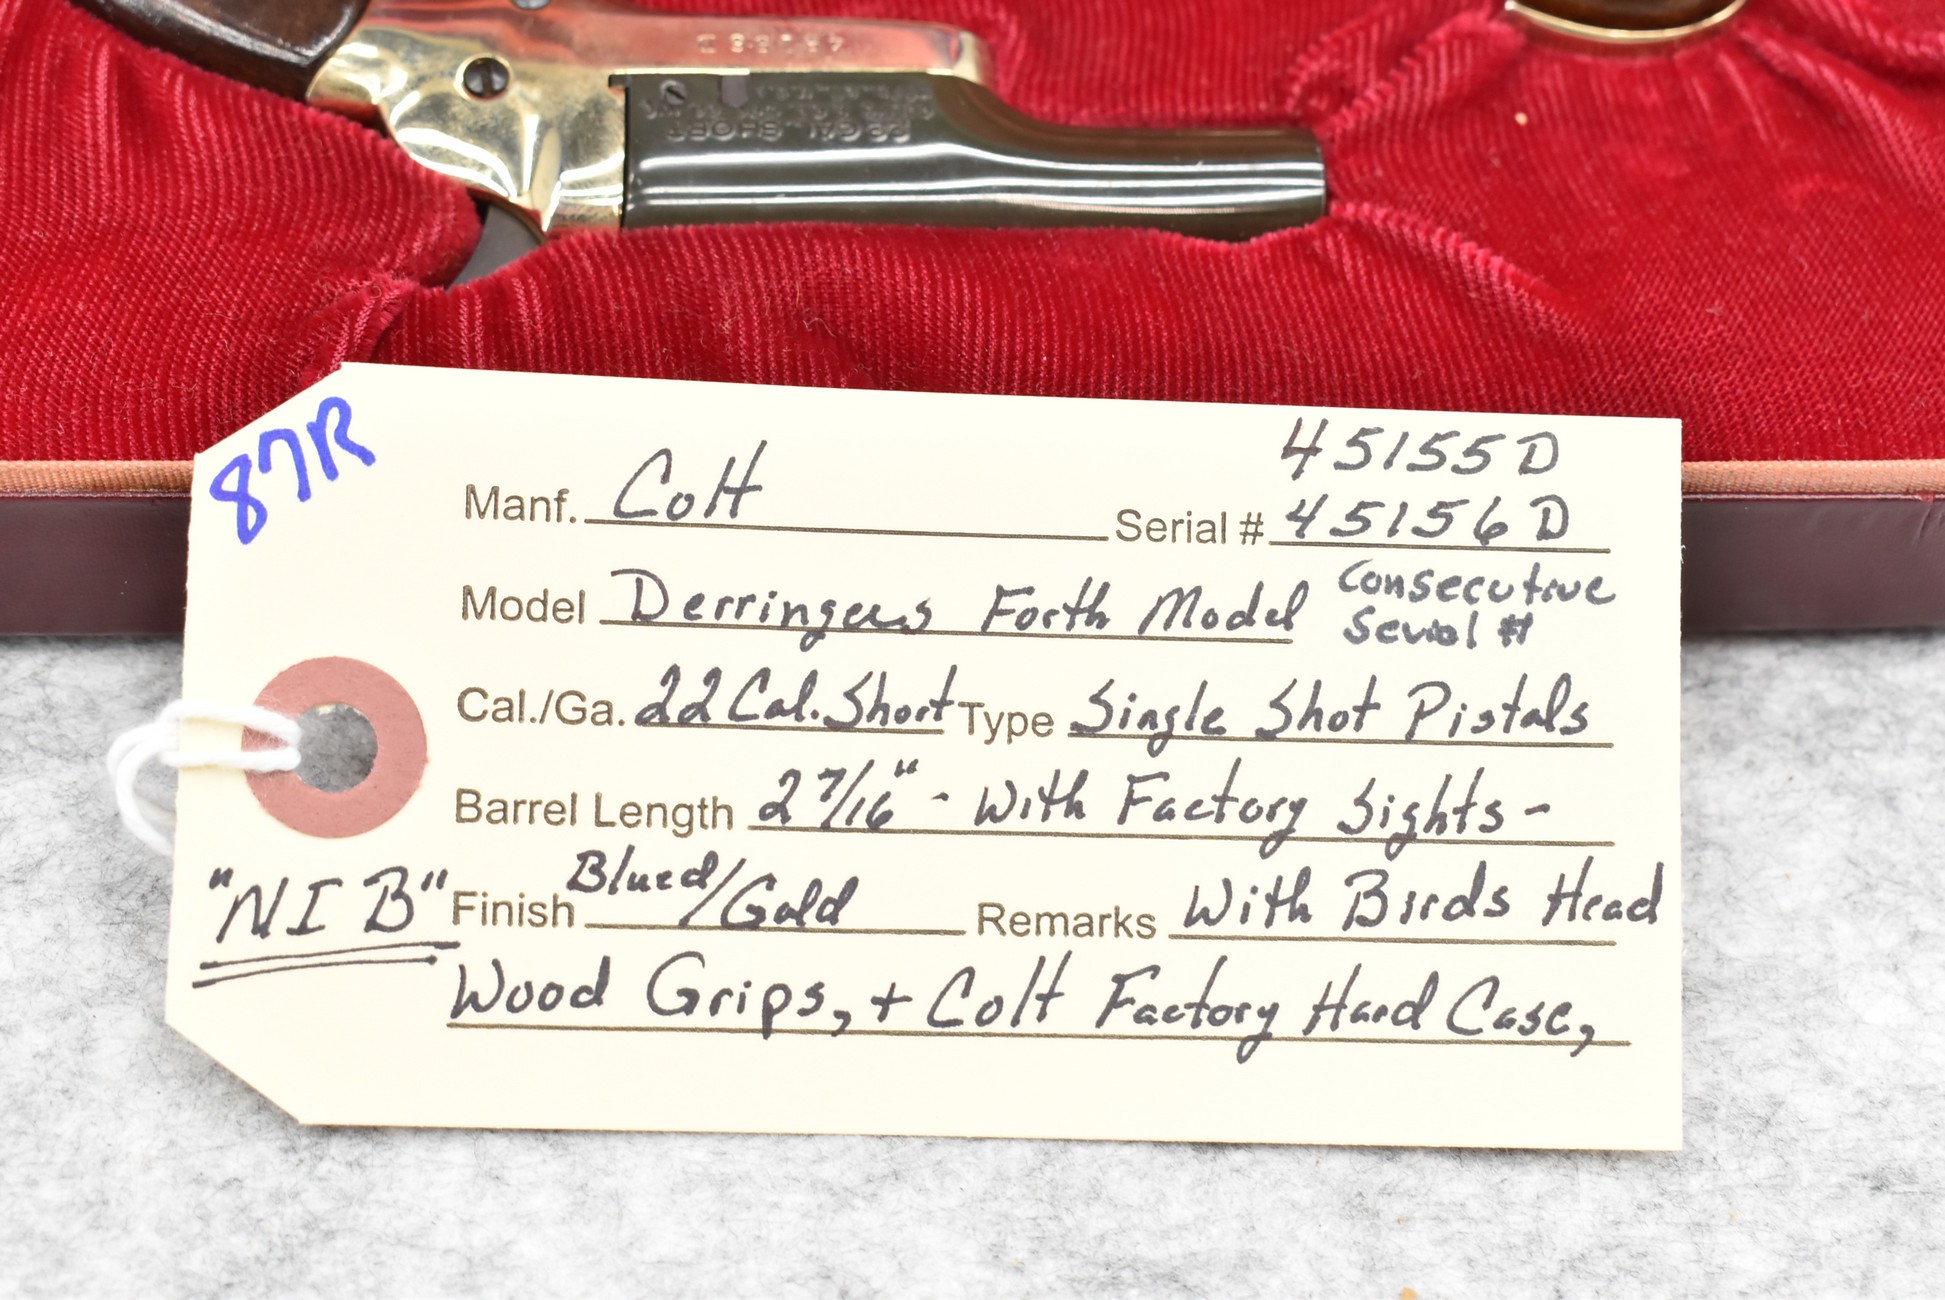 22 CAL. SHORT
87R
45155D
Manf. Colt Serial # 45156D
Model Derringers Forth Model Consecutive
Serial #
Cal./Ga. 22 Cal. Short Type Single Shot Pistols
Barrel Length 2 7/16" - With Factory Sights -
"NIB" Finish Blued/Gold Remarks With Birds Head
Wood Grips, + Colt Factory Hard Case,